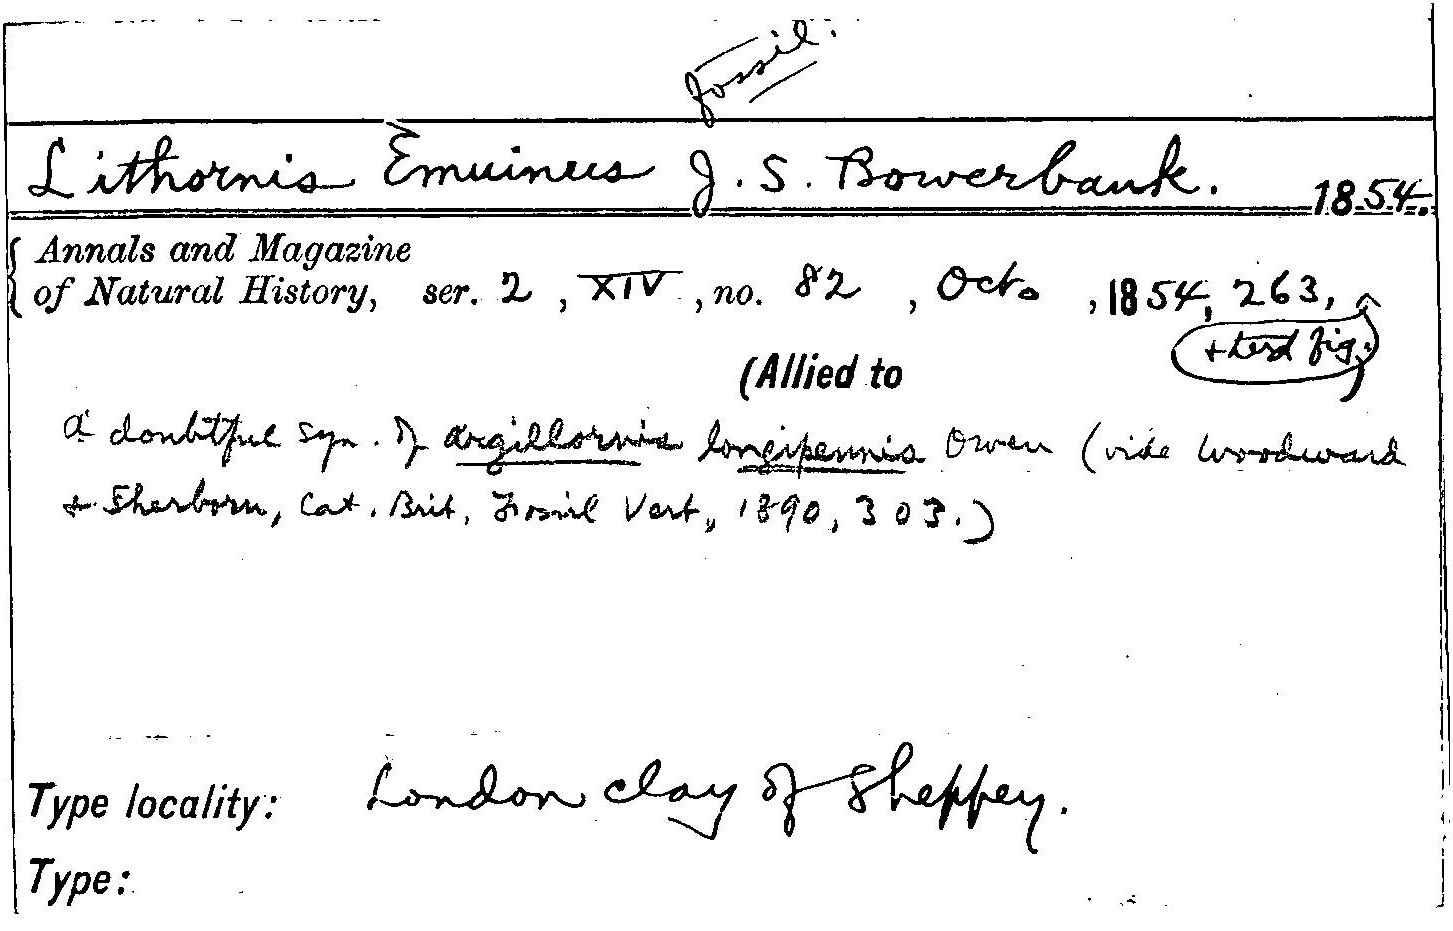 fossil.
Lithornis Emuinus J. S. Bowerbank. 1854.
Annals and Magazine
of Natural History, ser. 2, XIV, no. 82, Oct., 1854, 263,
+ text fig.
(Allied to )
A doubtful syn. of Argillornis longipennis Owen (vide Woodward
& Sherborn, Cat. Brit. Fossil Vert., 1890, 303.)
Type locality: London clay of Sheppey.
Type: